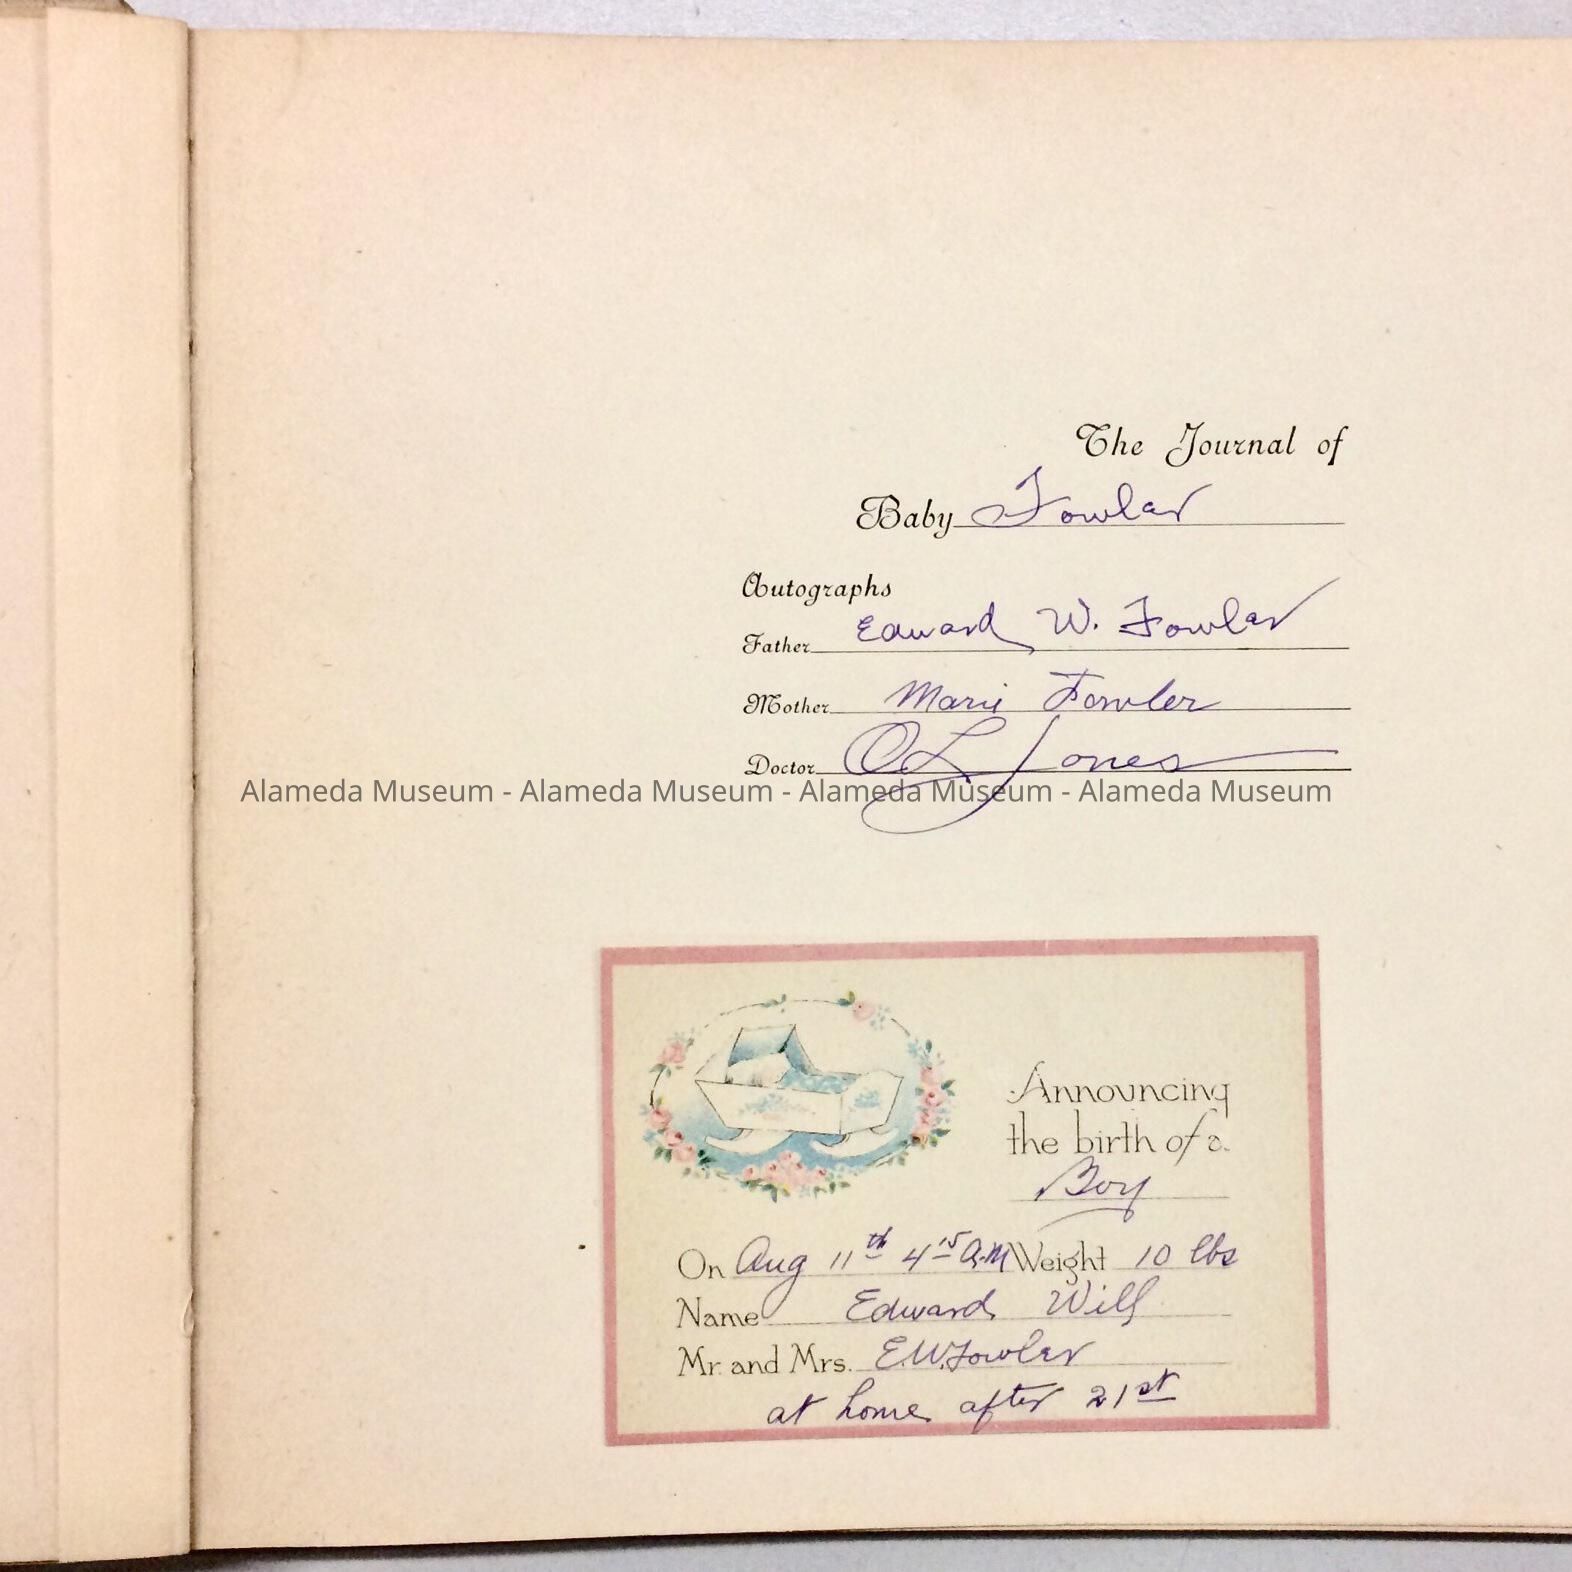 The Journal of
Baby Fowler
Autographs
Father Edward W. Fowler
Mother Marie Fowler
Doctor O L Jones
Alameda Museum - Alameda Museum - Alameda Museum - Alameda Museum
Announcing
the birth of a
Boy
On Aug 11th 4 15 A.M Weight 10 lbs
Name Edward Will
Mr. and Mrs. E.W. Fowler
at home after 21st